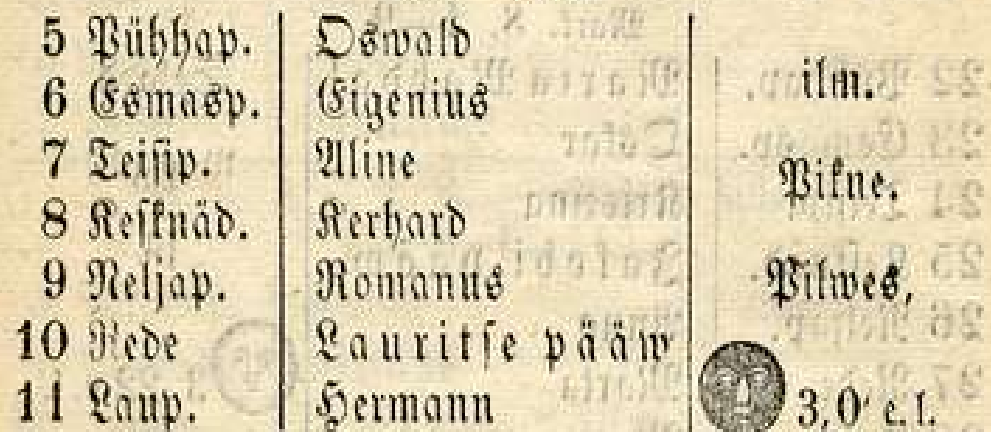 5 Pühhap. Oswald
6 Esmasp. Eigenius ilm.
7 Teisip. Aline Pikne.
8 Kesknäd. Kerhard
9 Neljap. Romanus Pilwes,
10 Rede Lauritse pääw
11 Laup. Hermann 3,0' e. l.